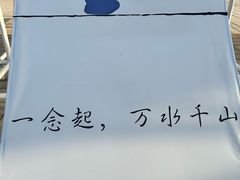 一念起，万水千山